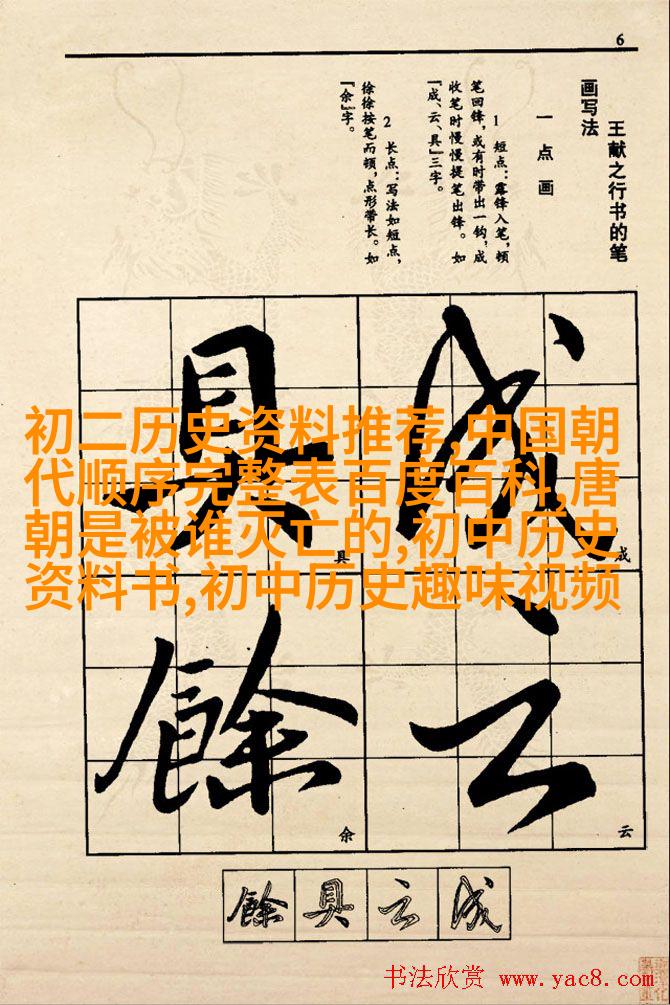 6
王献之行书的笔
画写法
一 点 画
1 短点：露锋入笔，顿
笔回锋，或有时带出一钩，成
收笔时慢慢提笔出锋。如
『成、云、具』三字。
2 长点：写法如短点，
徐徐按笔而顿，点形带长。如
『余』字。
成
成
具
具
初二历史资料推荐,中国朝
代顺序完整表百度百科,唐
朝是被谁灭亡的,初中历史
资料书,初中历史趣味视频
云
云
餘
余
餘 具 云 成
书法欣赏 www.yac8.com